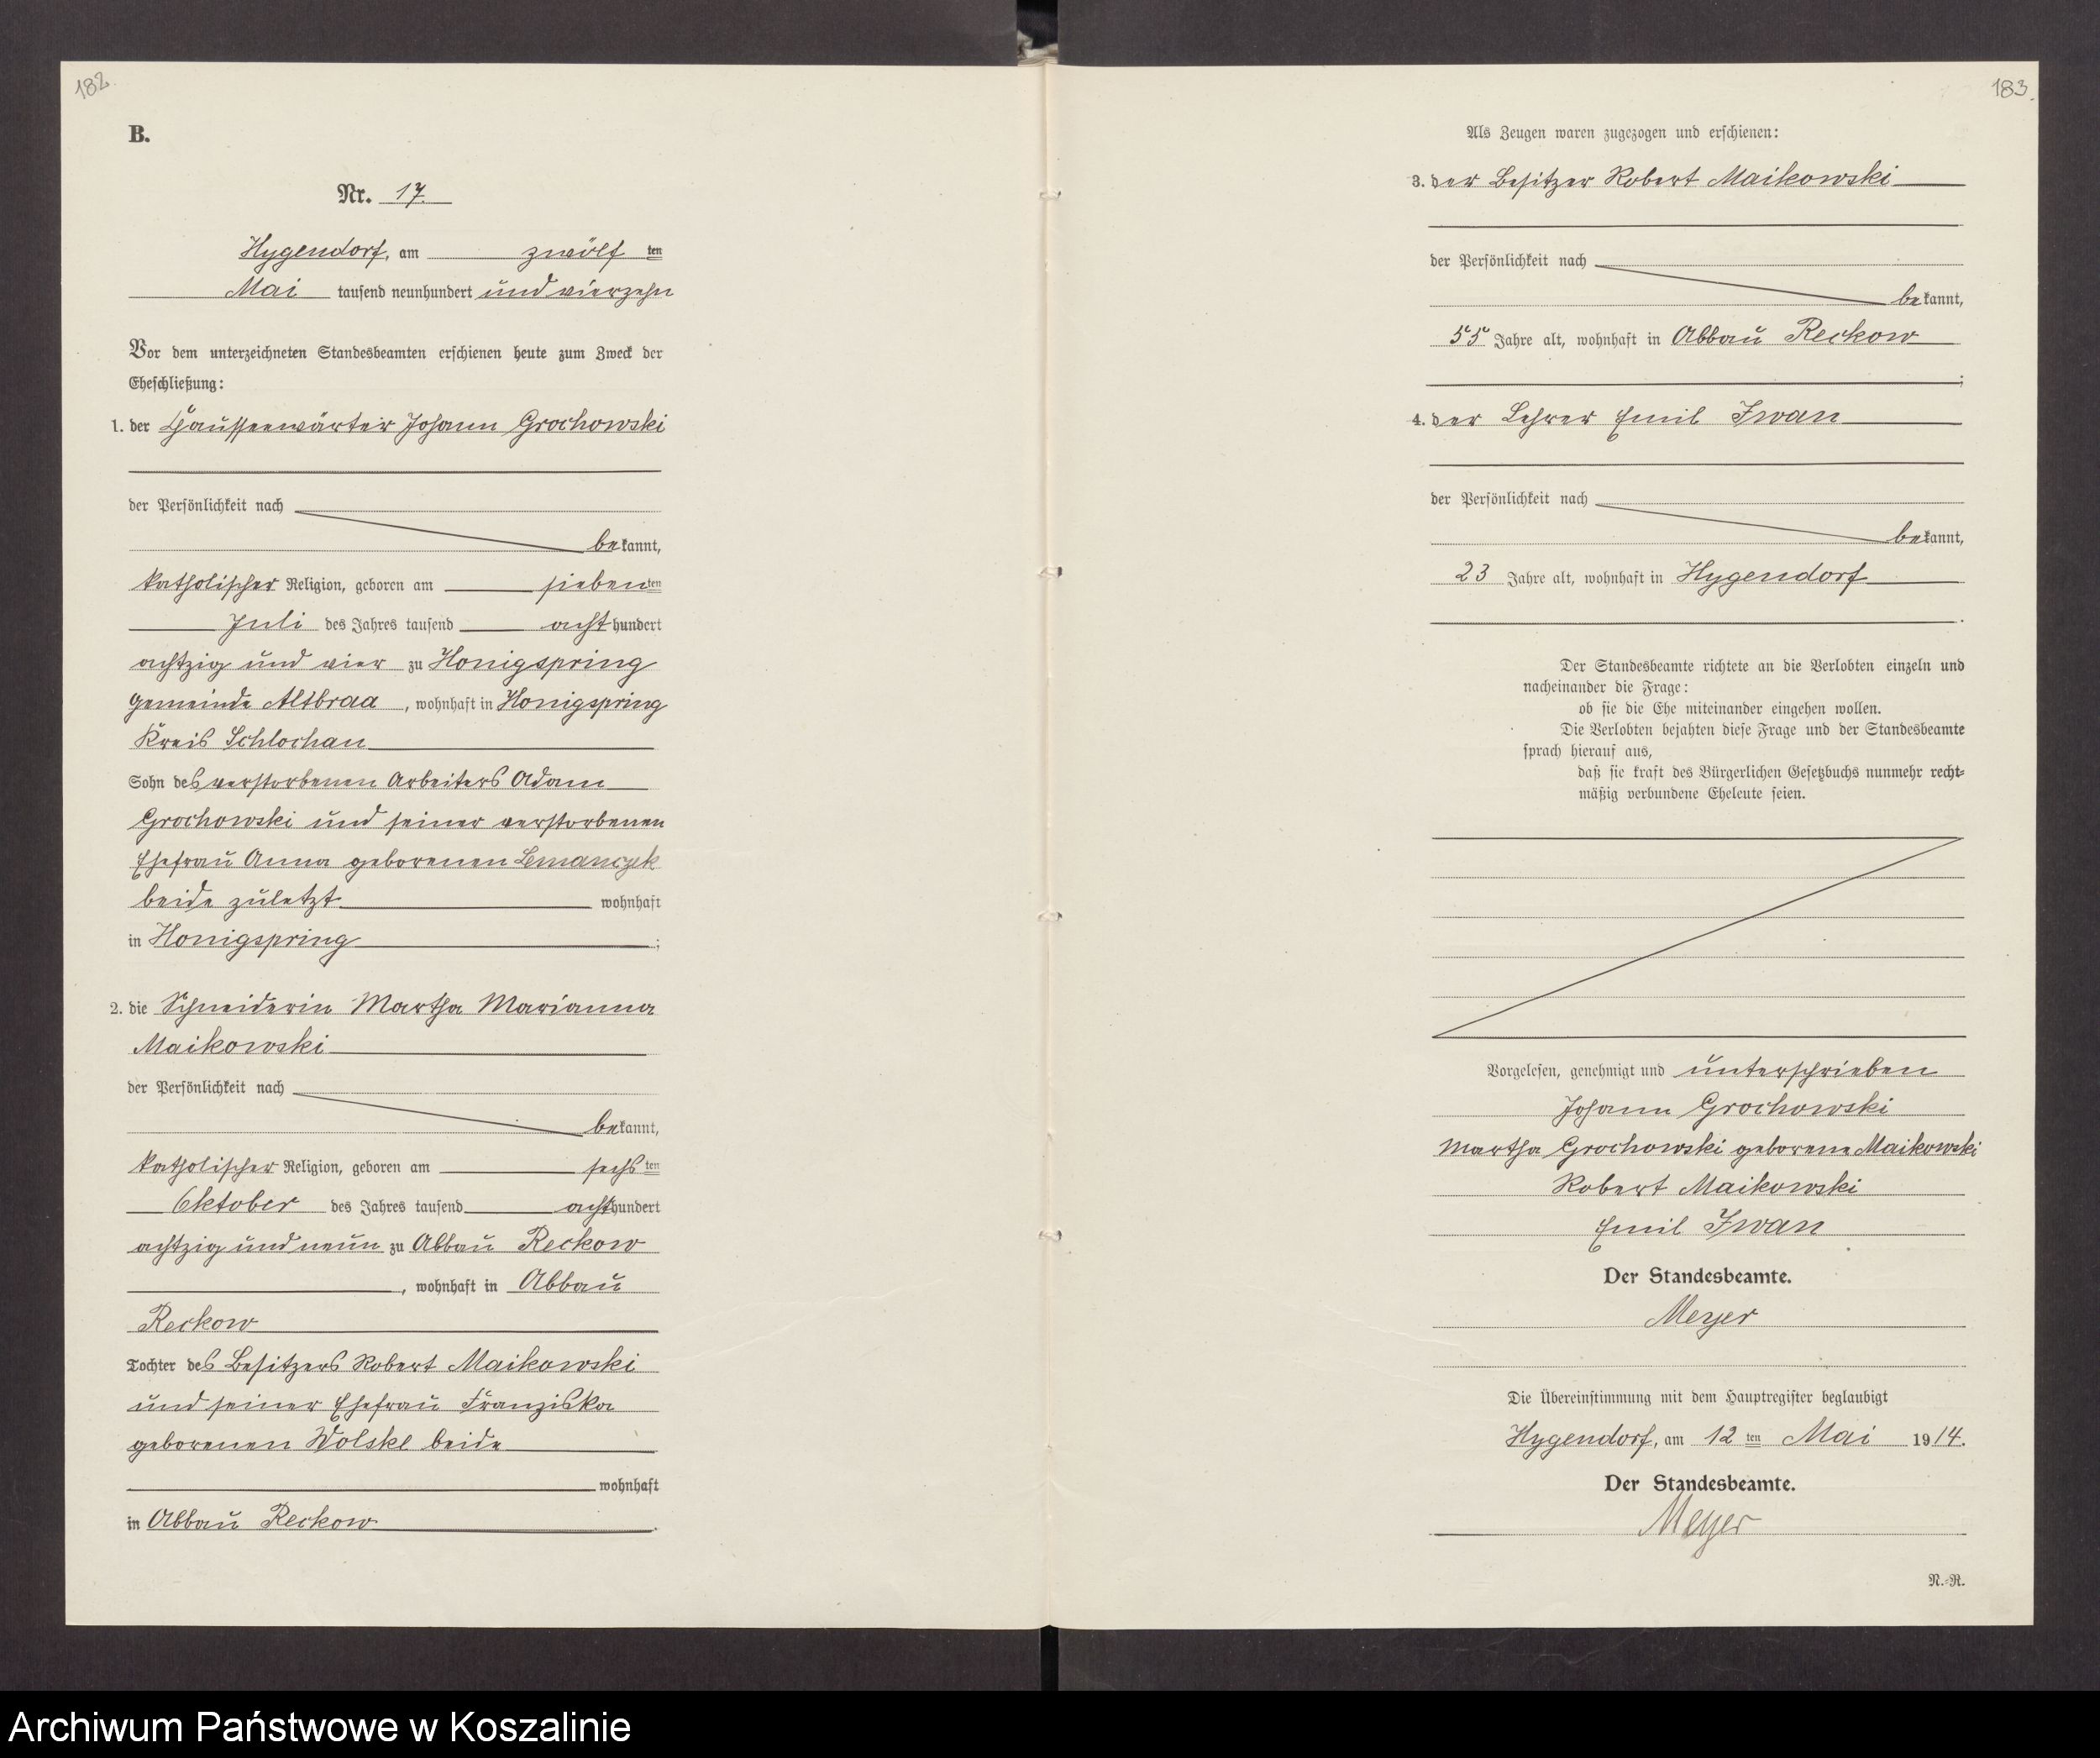 182.
B.
Nr. 17.
Hygendorf, am zwölf ten
Mai tausend neunhundert und vierzehn
Vor dem unterzeichneten Standesbeamten erschienen heute zum Zweck der
Eheschließung:
1. der Chausseewärter Johann Grochowski
der Persönlichkeit nach
bekannt,
katholischer Religion, geboren am sieben ten
Juli des Jahres tausend acht hundert
achtzig und vier zu Honigspring
Gemeinde Altbraa, wohnhaft in Honigspring
Kreis Schlochau
Sohn des verstorbenen Arbeiters Adam
Grochowski und seiner verstorbenen
Ehefrau Anna geborenen Lemanczyk
beide zuletzt wohnhaft
in Honigspring;
2. die Schneiderin Martha Marianna
Maikowski
der Persönlichkeit nach
bekannt,
katholischer Religion, geboren am sechs ten
Oktober des Jahres tausend acht hundert
achtzig und neun zu Abbau Reckow
, wohnhaft in Abbau
Reckow
Tochter des Besitzers Robert Maikowski
und seiner Ehefrau Franziska
geborenen Wolske beide
wohnhaft
in Abbau Reckow.
183.
Als Zeugen waren zugezogen und erschienen:
3. der Besitzer Robert Maikowski
der Persönlichkeit nach
bekannt,
55 Jahre alt, wohnhaft in Abbau Reckow
;
4. der Lehrer Emil Iwan
der Persönlichkeit nach
bekannt,
23 Jahre alt, wohnhaft in Hygendorf
.
Der Standesbeamte richtete an die Verlobten einzeln und
nacheinander die Frage:
ob sie die Ehe miteinander eingehen wollen.
Die Verlobten bejahten diese Frage und der Standesbeamte
sprach hierauf aus,
daß sie kraft des Bürgerlichen Gesetzbuchs nunmehr recht-
mäßig verbundene Eheleute seien.
Vorgelesen, genehmigt und unterschrieben
Johann Grochowski
Martha Grochowski geborene Maikowski
Robert Maikowski
Emil Iwan
Der Standesbeamte.
Meyer
Die Übereinstimmung mit dem Hauptregister beglaubigt
Hygendorf, am 12 ten Mai 1914.
Der Standesbeamte.
Meyer
N.-R.
Archiwum Państwowe w Koszalinie